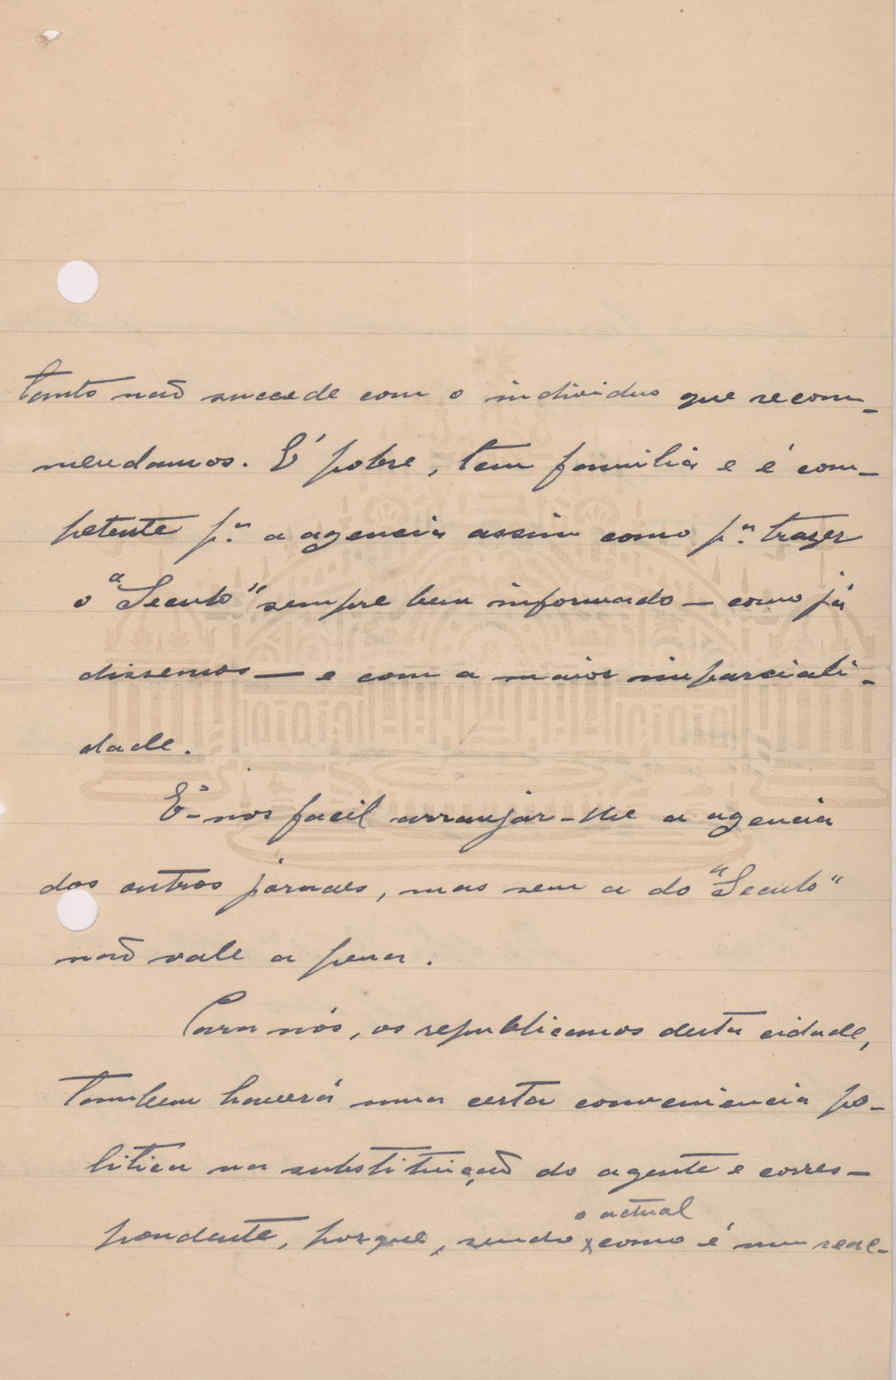 tanto não succede com o individuo que recom-
mendamos. É pobre, tem familia e é com-
petente p.ª a agencia assim como p.ª trazer
o "Seculo" sempre bem informado — como já
dissemos — e com a maior imparciali-
dade.
É-nos facil arranjar-lhe a agencia
dos outros jornaes, mas sem a do "Seculo"
não vale a pena.
Para nós, os republicanos desta cidade,
tambem haverá uma certa conveniencia po-
litica na substituição do agente e corres-
pondente, porque, sendo o actual como é um reac-